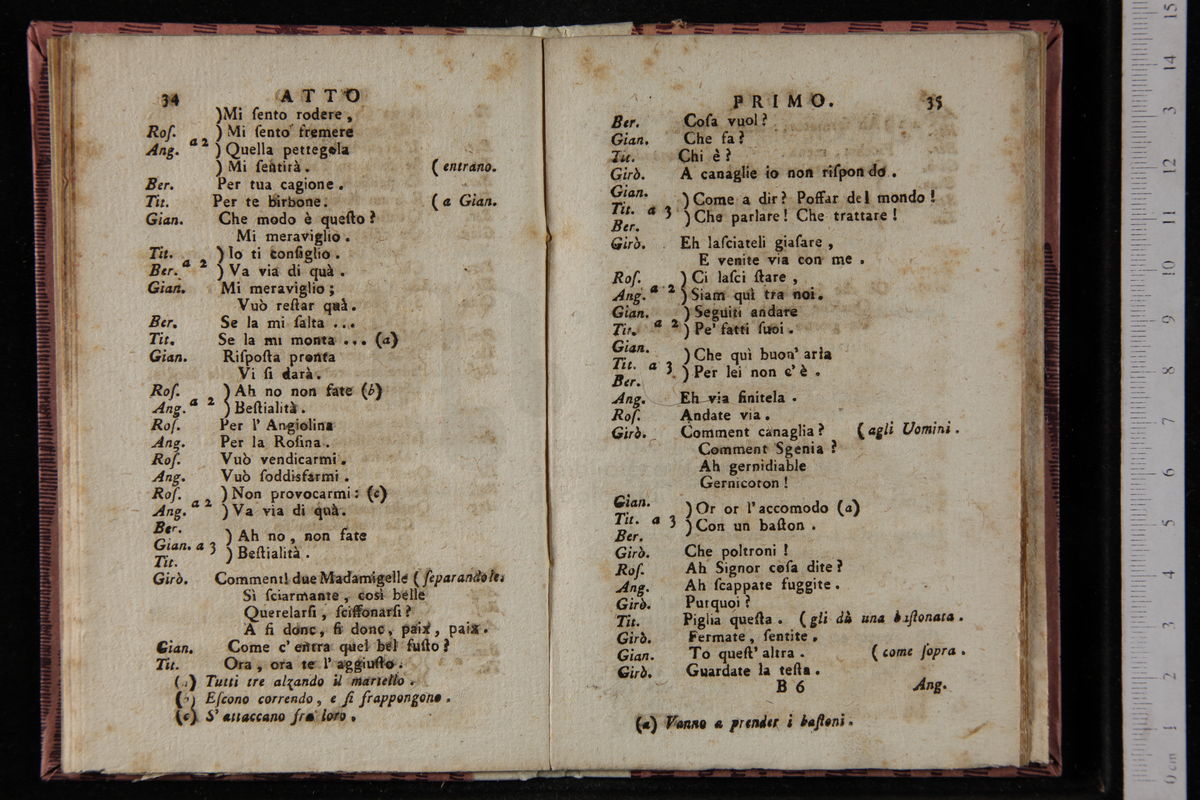 34 ATTO
)Mi ſento rodere ,
Roſ. ) Mi ſento fremere
Ang. a 2 ) Quella pettegola
) Mi ſentirà . ( entrano.
Ber. Per tua cagione .
Tit. Per te birbone. ( a Gian.
Gian. Che modo è queſto ?
Mi meraviglio .
Tit. a 2 ) Io ti conſiglio .
Ber. ) Va via di quà .
Gian. Mi meraviglio ;
Vuò reſtar quà.
Ber. Se la mi ſalta ...
Tit. Se la mi monta ... (a)
Gian. Riſpoſta pronta
Vi ſi darà.
Roſ. ) Ah no non fate (b)
Ang. a 2 ) Beſtialità .
Roſ. Per l' Angiolina
Ang. Per la Roſina .
Roſ. Vuò vendicarmi .
Ang. Vuò ſoddisfarmi .
Roſ. a 2 ) Non provocarmi : (c)
Ang. ) Va via di quà.
Ber.
Gian. a 3 ) Ah no , non fate
Tit. ) Beſtialità .
Girò. Comment! due Madamigelle ( ſeparandole.
Sì ſciarmante , così belle
Querelarſi , ſciffonarſi ?
A fi donc, fi donc, paix, paix.
Gian. Come c' entra quel bel fuſto ?
Tit. Ora , ora te l' aggiuſto .
(a) Tutti tre alzando il martello .
(b) Eſcono correndo , e ſi frappongono .
(c) S' attaccano fra loro .
PRIMO. 35
Ber. Coſa vuol ?
Gian. Che fa ?
Tit. Chi è ?
Girò. A canaglie io non riſpondo .
Gian.
Tit. a 3 ) Come a dir ? Poffar del mondo !
Ber. ) Che parlare ! Che trattare !
Girò. Eh laſciateli giaſare ,
E venite via con me .
Roſ. a 2 ) Ci laſci ſtare ,
Ang. ) Siam quì tra noi.
Gian. a 2 ) Seguiti andare
Tit. ) Pe' fatti ſuoi .
Gian.
Tit. a 3 ) Che quì buon' aria
Ber. ) Per lei non c' è .
Ang. Eh via finitela .
Roſ. Andate via .
Girò. Comment canaglia ? ( agli Uomini .
Comment Sgenia ?
Ah gernidiable
Gernicoton !
Gian.
Tit. a 3 ) Or or l' accomodo (a)
Ber. ) Con un baſton .
Girò. Che poltroni !
Roſ. Ah Signor coſa dite ?
Ang. Ah ſcappate fuggite .
Girò. Purquoi ?
Tit. Piglia queſta . ( gli dà una baſtonata .
Girò. Fermate , ſentite .
Gian. To queſt' altra . ( come ſopra .
Girò. Guardate la teſta .
B 6 Ang.
(a) Vanno a prender i baſtoni .
15
14
3
12
11
10
9
8
7
6
5
4
3
2
1
0 cm